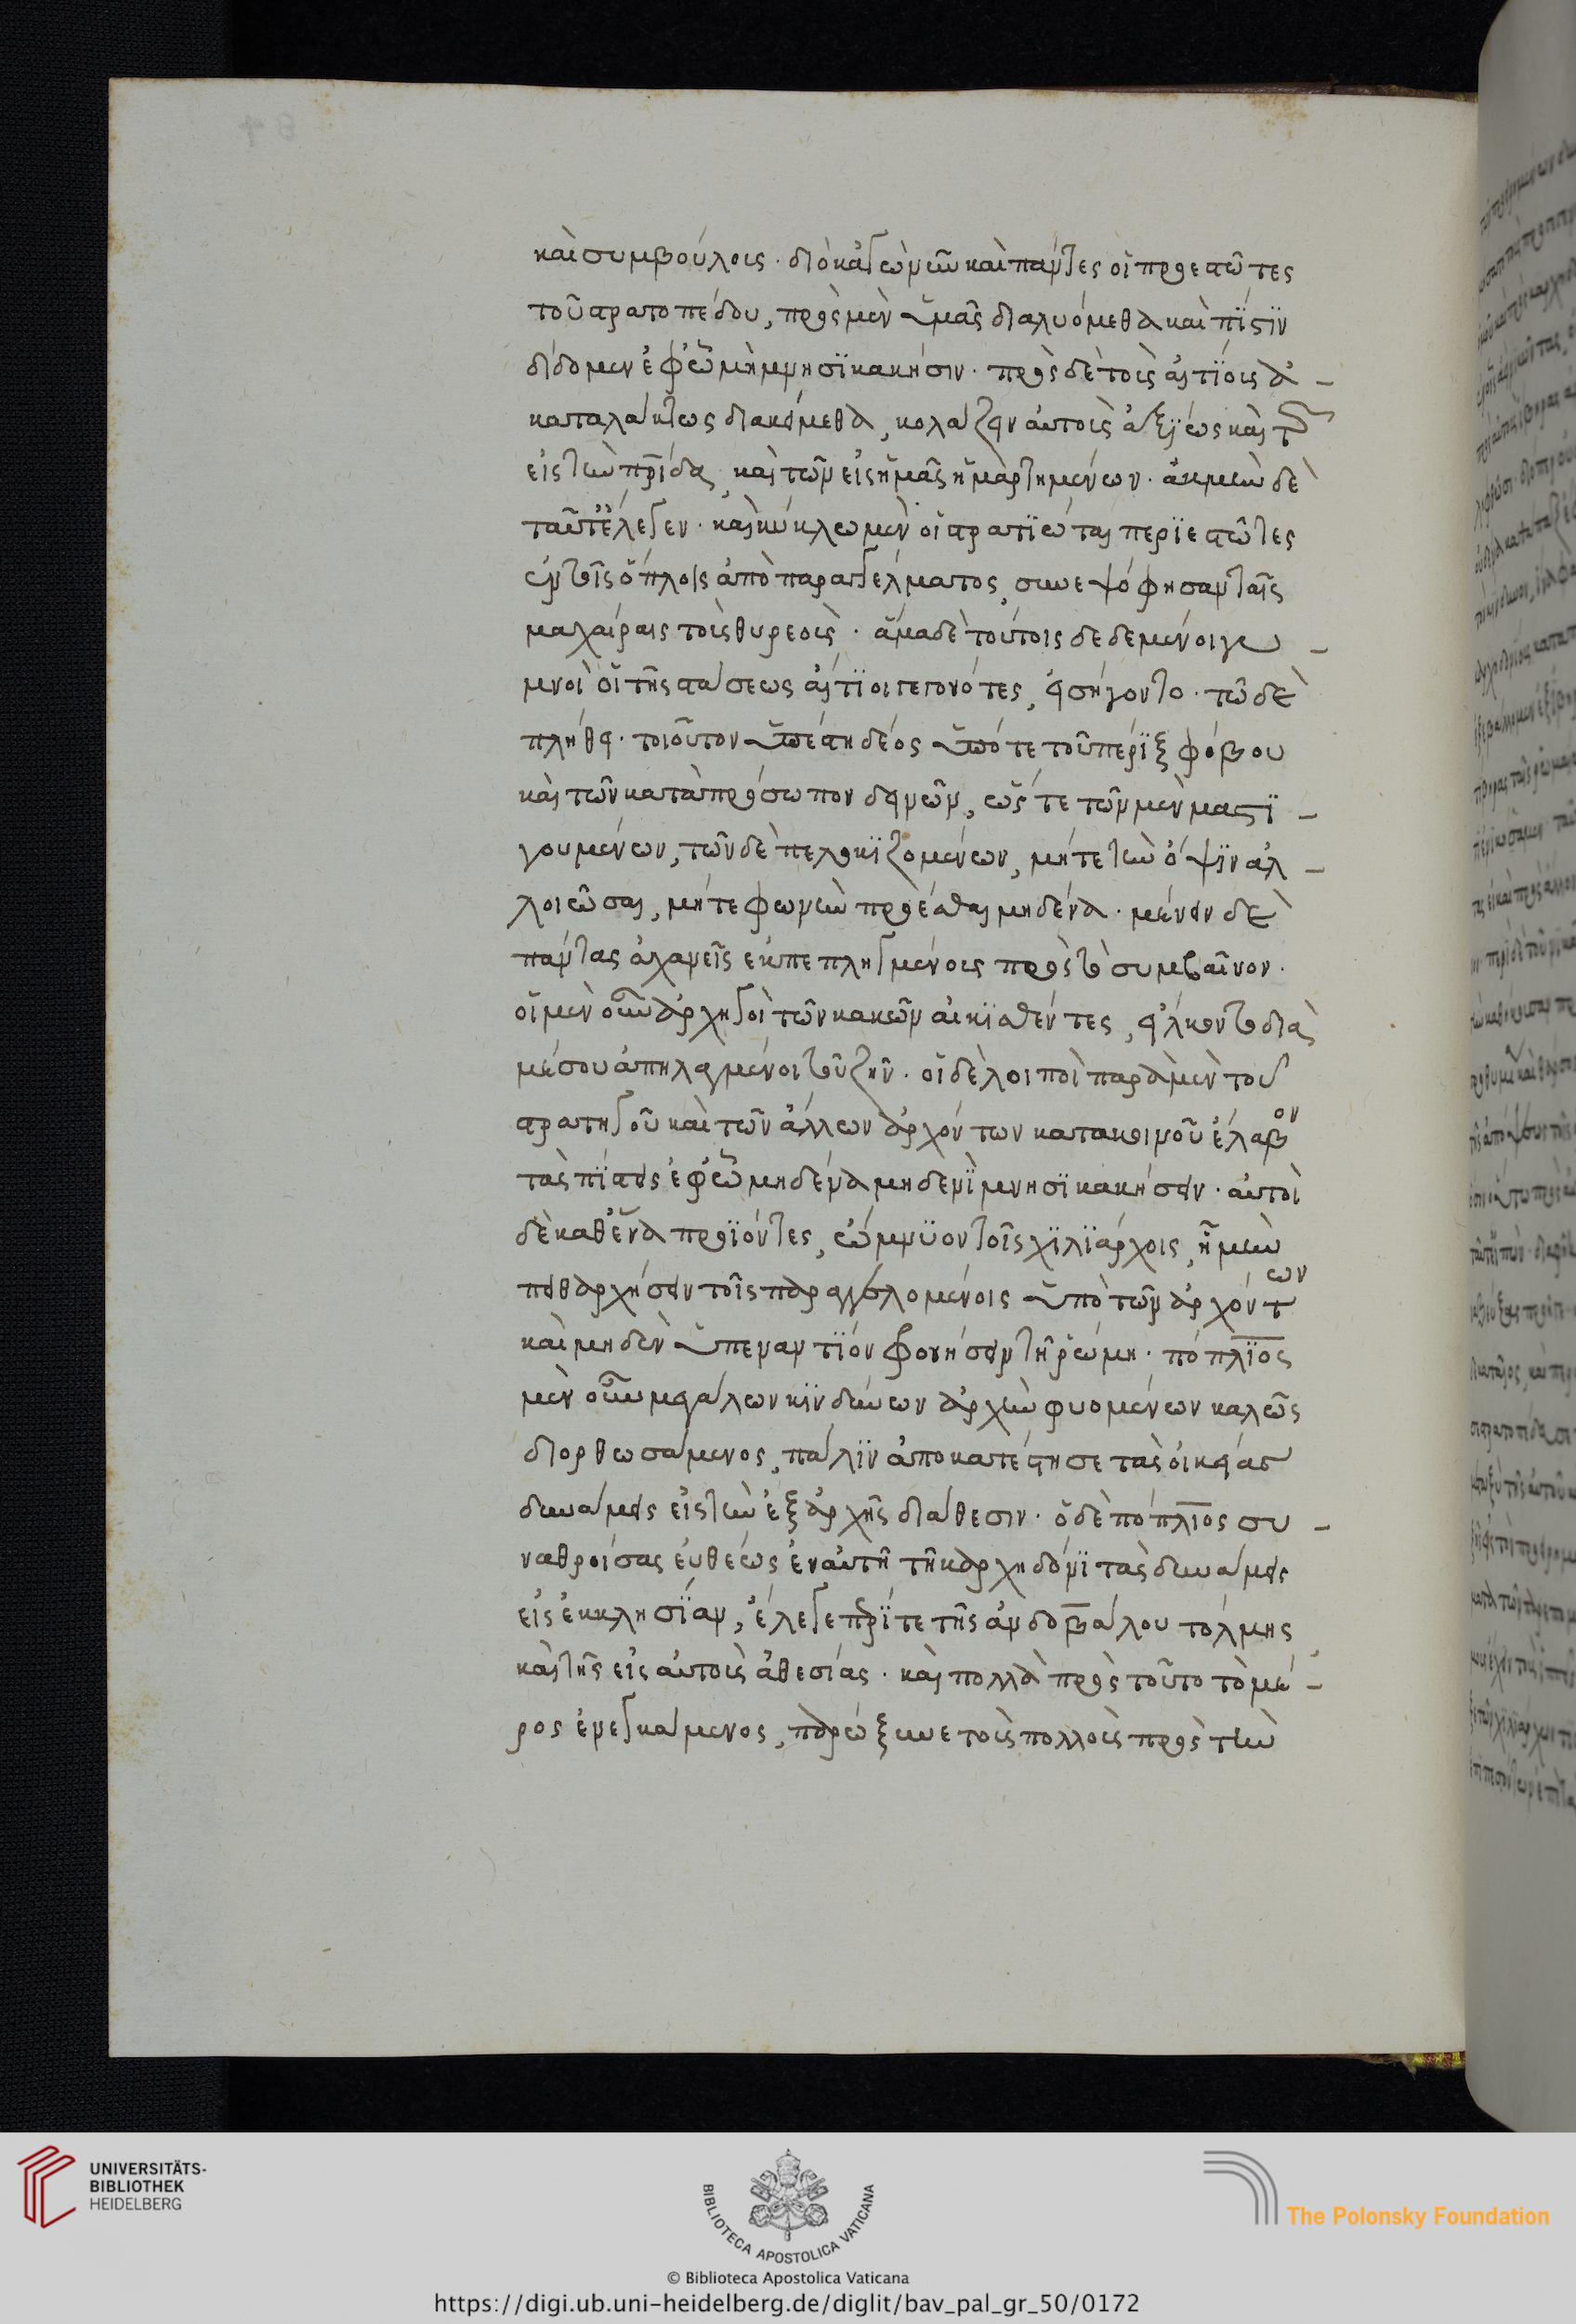 καὶ συμβούλοις· διὸ κἀγὼ νῦν καὶ πάντες οἱ προεστῶτες
τοῦ στρατοπέδου, πρὸς μὲν ὑμᾶς διαλυόμεθα καὶ πίστϊν
δίδομεν ἐφ' ῷ μὴ μνησϊκακήσιν· πρὸς δὲ τοὺς αἰτΐους ἀ-
καταλάκτως διακείμεθα, κολάζειν αὐτοὺς ἀξΐως καὶ τῶν
εἰς τὴν πρίδα, καὶ τῶν εἰς ἡμᾶς ἡμαρτημένων. ἀκμὴν δὲ
ταῦτ' ἔλεγεν· καὶ κύκλω μὲν οἱ στρατϊῶται περϊεστῶτες
ἐν τοῖς ὅπλοις ἀπὸ παραγγέλματος, συνεψόφησαν ταῖς
μαχαίραις τοὺς θυρεοὺς· ἅμα δὲ τούτοις δεδεμένοι γυ-
μνοὶ οἱ τῆς στάσεως αἴτϊοι γεγονότες, εἰσήγοντο· τῶ δὲ
πλήθει· τοιοῦτον ὑπέστη δέος ὑπό τε τοῦ πέρϊξ φόβου
καὶ τῶν κατὰ πρόσωπον δεινῶν, ὥστε τῶν μὲν μαστϊ-
γουμένων, τῶν δὲ πελεκϊζομένων, μήτε τὴν ὄψϊν ἀλ-
λοιῶσαι, μήτε φωνὴν προέσθαι μηδένα· μένειν δὲ
πάντας ἀχανεῖς ἐκπεπληγμένους πρὸς τὸ συμβαῖνον.
οἱ μὲν οὖν ἀρχηγοὶ τῶν κακῶν αἰκϊσθέντες, εἵλκοντο διὰ
μέσου ἀπηλαγμένοι τοῦ ζῆν· οἱ δὲ λοιποὶ παρὰ μὲν τοῦ
στρατηγοῦ καὶ τῶν ἄλλων ἀρχόντων κατακοιμοῦ ἔλαβον
τὰς πΐστεις ἐφ' ῷ μηδένα μηδενὶ μνησϊκακήσειν· αὐτοὶ
δὲ καθ' ἕνα προϊόντες, ὤμνϋον τοῖς χϊλϊάρχοις, ἦ μὴν
πειθαρχήσειν τοῖς παραγγελομένοις ὑπὸ τῶν ἀρχόντων
καὶ μηδὲν ὑπεναντΐον φρονήσειν τῆ ῥώμη· πόπλϊος
μὲν οὖν μεγάλων κϊνδύνων ἀρχὴν φυομένων καλῶς
διορθωσάμενος, πάλϊν ἀποκατέστησε τὰς οἰκείας
δυνάμεις εἰς τὴν ἐξ ἀρχῆς διάθεσιν· ὁ δὲ πόπλιος συ-
ναθροίσας εὐθέως ἐν αὐτῆ τῆ καρχηδόνϊ τὰς δυνάμεις
εἰς ἐκκλησΐαν, ἔλεγε περΐ τε τῆς ἀνδοβάλου τόλμης
καὶ τῆς εἰς αὐτοὺς ἀθεσίας· καὶ πολλὰ πρὸς τοῦτο τὸ μέ-
ρος ἐνεγκάμενος, παρώξυνε τοὺς πολλοὺς πρὸς τὴν
UNIVERSITÄTS-
BIBLIOTHEK
HEIDELBERG
BIBLIOTECA APOSTOLICA VATICANA
The Polonsky Foundation
© Biblioteca Apostolica Vaticana
https://digi.ub.uni-heidelberg.de/diglit/bav_pal_gr_50/0172